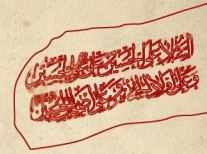 السلام علی الحسین و علی علی بن الحسین
و علی اولاد الحسین و علی اصحاب الحسین